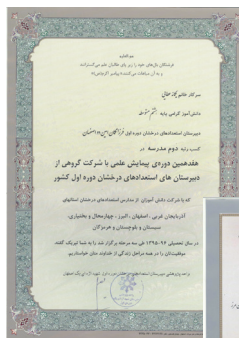 سرکار خانم
دانش‌آموز گرامی پایه هشتم
دبیرستان استعدادهای درخشان دوره اول فرزانگان امین دو اصفهان
کسب رتبه دوم مدرسه در
هفدهمین دوره‌ی پیمایش علمی با شرکت گروهی از
دبیرستان های استعدادهای درخشان دوره اول کشور
که با شرکت دانش آموزان از مدارس استعدادهای درخشان استانهای
آذربایجان غربی ، اصفهان ، البرز ، چهارمحال و بختیاری،
سیستان و بلوچستان و هرمزگان
در سال تحصیلی ۹۶-۱۳۹۵ طی سه مرحله برگزار شد را به شما تبریک گفته،
موفقیتتان را در همه مراحل زندگی از خداوند منان خواستاریم.